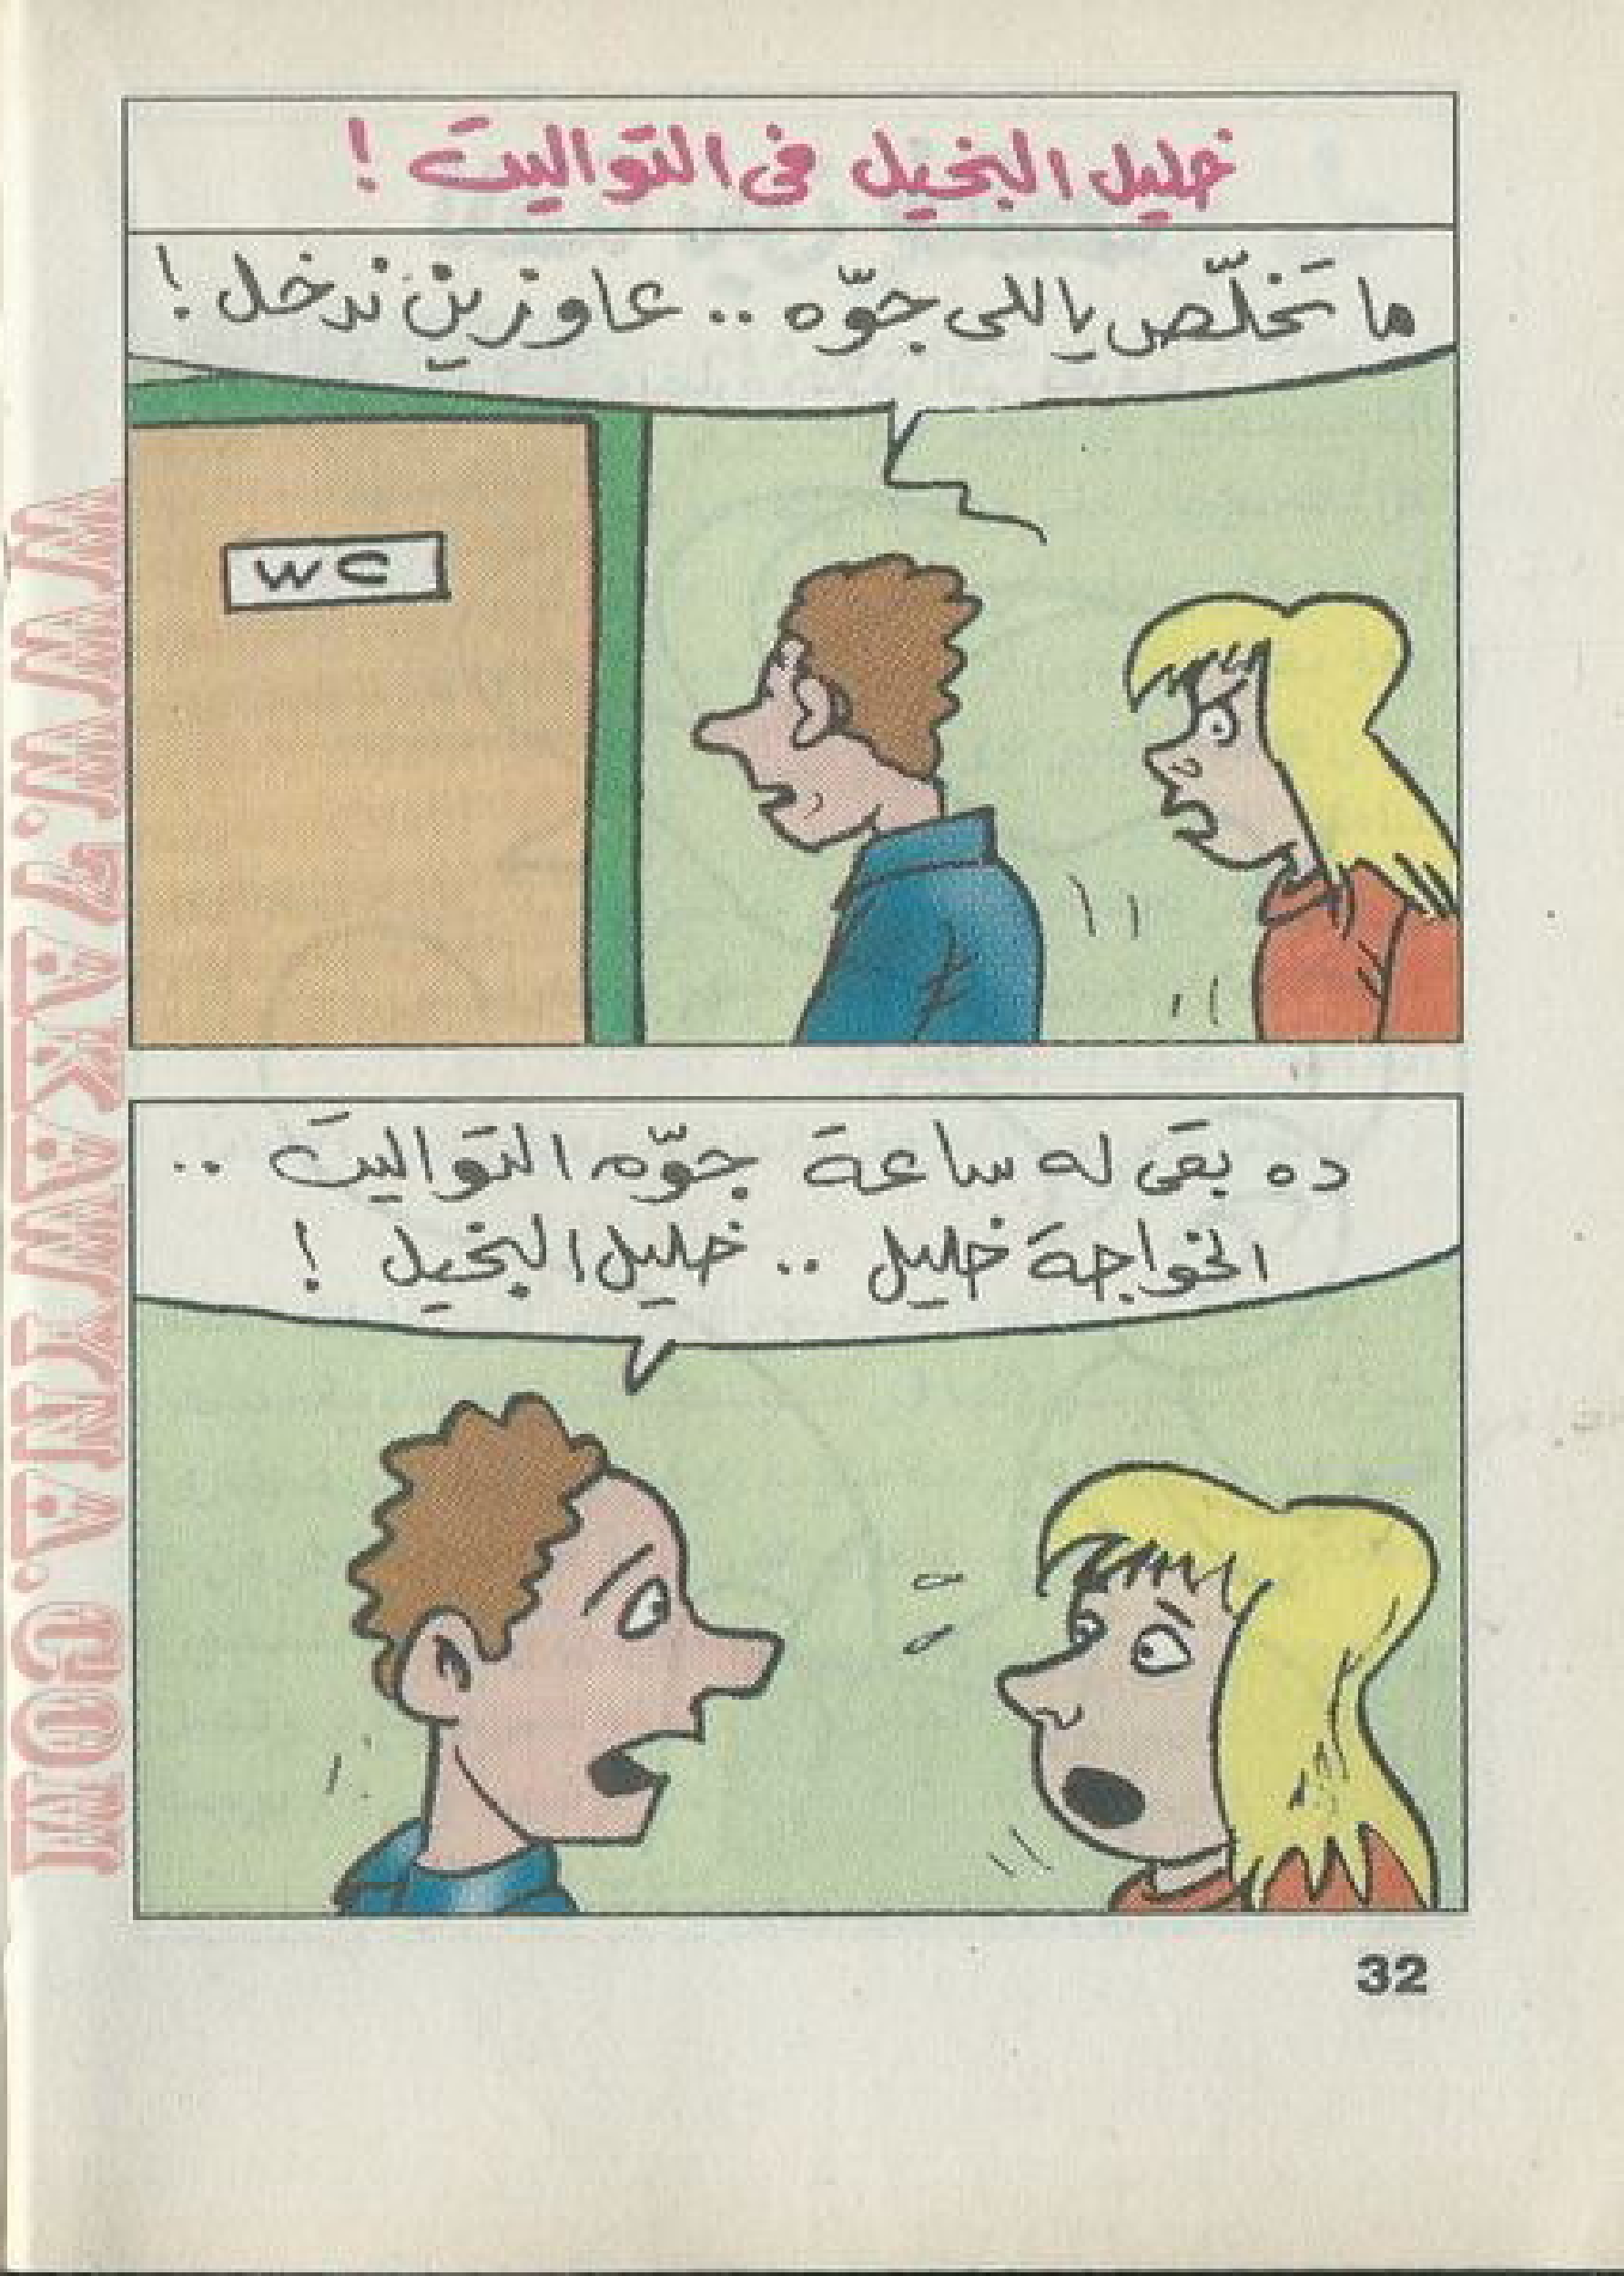 خليل البخيل في التواليت !
ما تخلّص ياللي جوّه .. عاوزين ندخل !
WC
ده بقى له ساعة جوّه التواليت ..
الخواجة خليل .. خليل البخيل !
32
WWW.ZAKAWTNA.COM